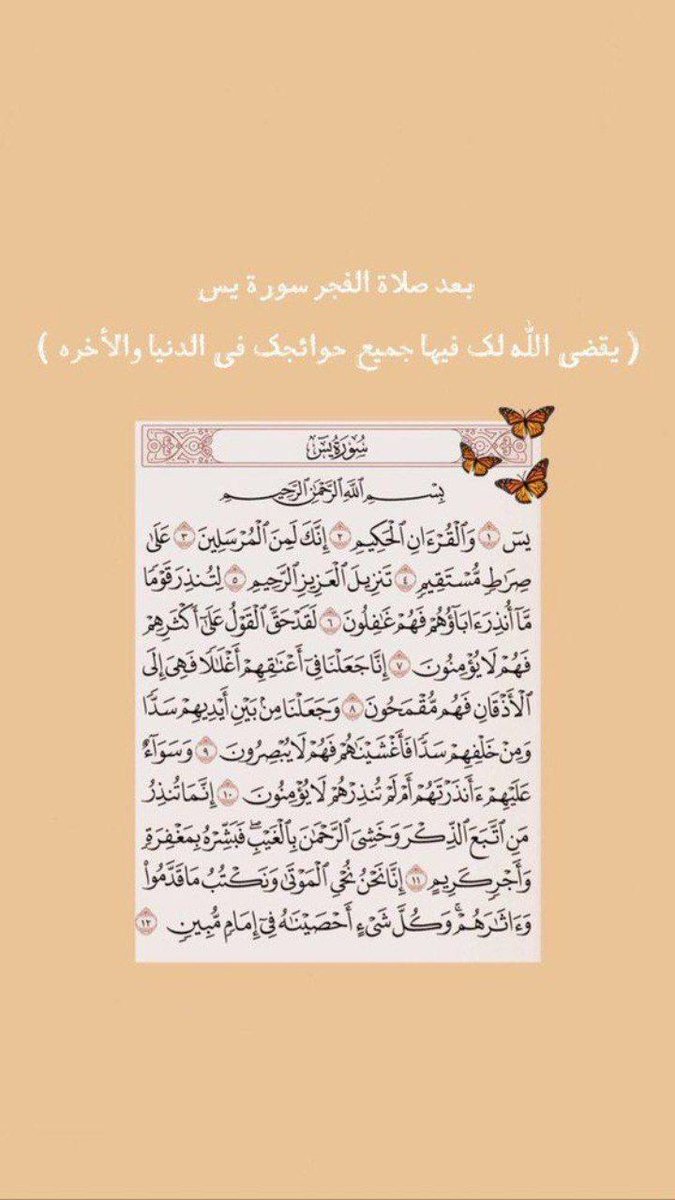 بعد صلاة الفجر سورة يس
( يقضي الله لك فيها جميع حوائجك في الدنيا والأخره )
سُورَةُ يسٓ
بِسْمِ ٱللَّهِ ٱلرَّحْمَٰنِ ٱلرَّحِيمِ
يسٓ ١ وَٱلْقُرْءَانِ ٱلْحَكِيمِ ٢ إِنَّكَ لَمِنَ ٱلْمُرْسَلِينَ ٣ عَلَىٰ
صِرَٰطٍ مُّسْتَقِيمٍ ٤ تَنزِيلَ ٱلْعَزِيزِ ٱلرَّحِيمِ ٥ لِتُنذِرَ قَوْمًا
مَّآ أُنذِرَ ءَابَآؤُهُمْ فَهُمْ غَٰفِلُونَ ٦ لَقَدْ حَقَّ ٱلْقَوْلُ عَلَىٰٓ أَكْثَرِهِمْ
فَهُمْ لَا يُؤْمِنُونَ ٧ إِنَّا جَعَلْنَا فِىٓ أَعْنَٰقِهِمْ أَغْلَٰلًا فَهِىَ إِلَى
ٱلْأَذْقَانِ فَهُم مُّقْمَحُونَ ٨ وَجَعَلْنَا مِنۢ بَيْنِ أَيْدِيهِمْ سَدًّا
وَمِنْ خَلْفِهِمْ سَدًّا فَأَغْشَيْنَٰهُمْ فَهُمْ لَا يُبْصِرُونَ ٩ وَسَوَآءٌ
عَلَيْهِمْ ءَأَنذَرْتَهُمْ أَمْ لَمْ تُنذِرْهُمْ لَا يُؤْمِنُونَ ١٠ إِنَّمَا تُنذِرُ
مَنِ ٱتَّبَعَ ٱلذِّكْرَ وَخَشِىَ ٱلرَّحْمَٰنَ بِٱلْغَيْبِ ۖ فَبَشِّرْهُ بِمَغْفِرَةٍ
وَأَجْرٍ كَرِيمٍ ١١ إِنَّا نَحْنُ نُحْىِ ٱلْمَوْتَىٰ وَنَكْتُبُ مَا قَدَّمُوا۟
وَءَاثَٰرَهُمْ ۚ وَكُلَّ شَىْءٍ أَحْصَيْنَٰهُ فِىٓ إِمَامٍ مُّبِينٍ ١٢